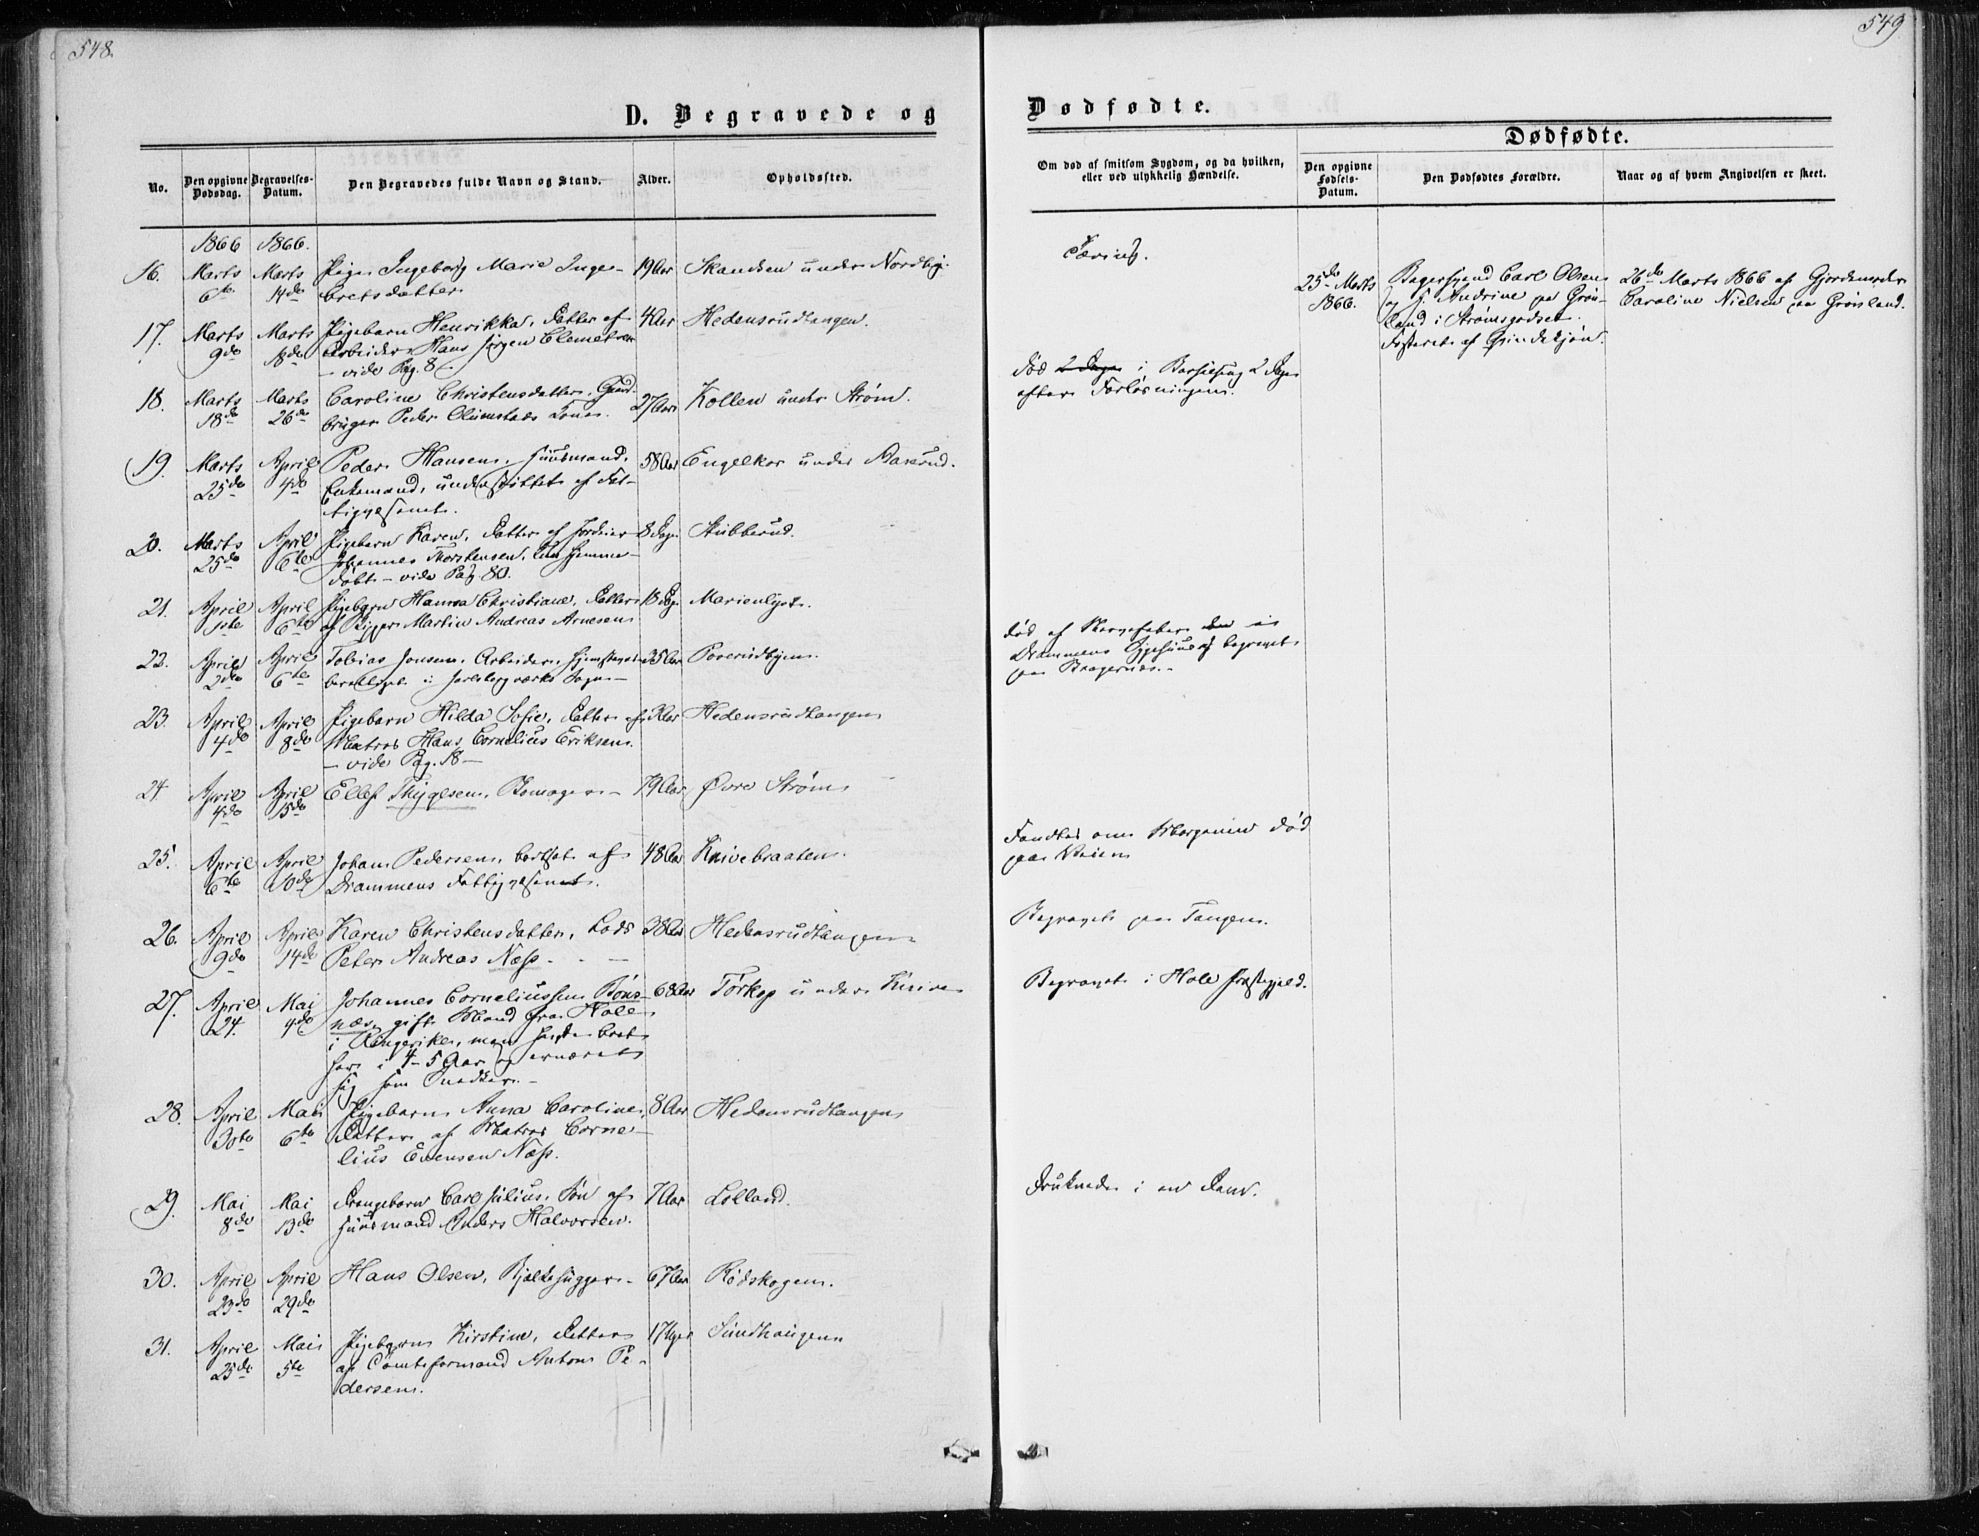 548.
D. Begravede og
No.
Den opgivne Dødsdag.
Begravelses-Datum.
Den Begravedes fulde Navn og Stand.
Alder.
Opholdssted.
1866 1866.
16. Marts 6te Marts 14de Pige Ingeborg Marie Inge- 19 Aar Skandsen under Nordby.
bretsdatter
17. Marts 9de Marts 18de Pigebarn Henrikka, Datter af 4 Aar Hedensrudtangen.
Arbeider Hans Jørgen Clemetsen
- vide Pag. 8 -
18. Marts 18de Marts 26de Caroline Christensdatter, Gaard- 27 Aar Kollen under Strøm.
bruger Peder Olumstads Kone.
19. Marts 25de April 4de Peder Hansen, Huusmand, 58 Aar Engelkor under
Enkemand, understøttet af Fat-
tigvesenet.
20. Marts 25de April 6te Pigebarn Karen, Datter af Jordeier 8 Dage Stubberud.
Johannes Thorstensen, kun hjemme-
døbt - vide Pag 80.
21. April 1ste April 6te Pigebarn Hanna Christiane, Datter 18 Dage Marienlyst.
af Rigger Martin Andreas Arnesen
22. April 2den April 6te Tobias Jonsen, Arbeider, hjemstavns- 35 Aar
berettiget i Jarlsbergværks Sogn -
23. April 4de April 8de Pigebarn Hilda Sofie, Datter af 3 Aar Hedensrudtangen
Matros Hans Cornelius Eriksen.
- vide Pag. 18 -
24 April 4de April 15de Ellef Thygesen, - 79 Aar Øvre Strøm
25. April 6te April 10de Johan Pedersen, bortsat af 48 Aar Knivebraaten.
Drammens Fattigvesenet.
26. April 9de April 14de Karen Christensdatter, Lods 38 Aar Hedensrudtangen
Peter Andreas Næss. - -
27. April 24. Mai 4de Johannes Corneliussen Bøns- 68 Aar Tørkop under Knive
næs, gift Mand fra Hole
i Ringerike, men havde boet
her i 4-5 Aar og ernæret
sig som Snedker. -
28. April 30te Mai 6te Pigebarn Anna Caroline, 8 Aar Hedensrudtangen
Datter af Matros Corne-
lius Evensen Næss.
29. Mai 8de Mai 13de Drengebarn Carl Julius, Søn af 7 Aar Lolland.
Huusmand Anders Halvorsen.
30. April 23de April 29de Hans Olsen, Bjælkehugger - 67 Aar Rødskogen.
31. April 25de Mai 5te Pigebarn Kirstine, Datter 17 Uger Sundhaugen
af Tomteformand Anton Pe-
dersen.
549
Dødfødte.
Om død af smitsom Sygdom, og da hvilken, eller ved ulykkelig Hændelse.
Dødfødte.
Den opgivne Fødsels-Datum.
Den Dødfødtes Forældre.
Naar og af hvem Angivelsen er skeet.
Tæring.
25de Marts 1866.
Bagersvend Carl Olsen
og H. Andrine paa Grøn-
land i Strømsgodset.
Fosteret af Qvindekjøn.
26de Marts 1866 af Gjordemoder
Caroline Nielsen paa Grønland.
død 2 Dage i Barselseng 2 Dage
efter Forløsningen.
død af i
Drammens Sygehuus og begravet
paa Bragernæs. -
Fandtes om Morgenen død
paa Veien
Begravet paa Tangen.
Begravet i Hole Præstegjeld.
Druknede i en Dam.